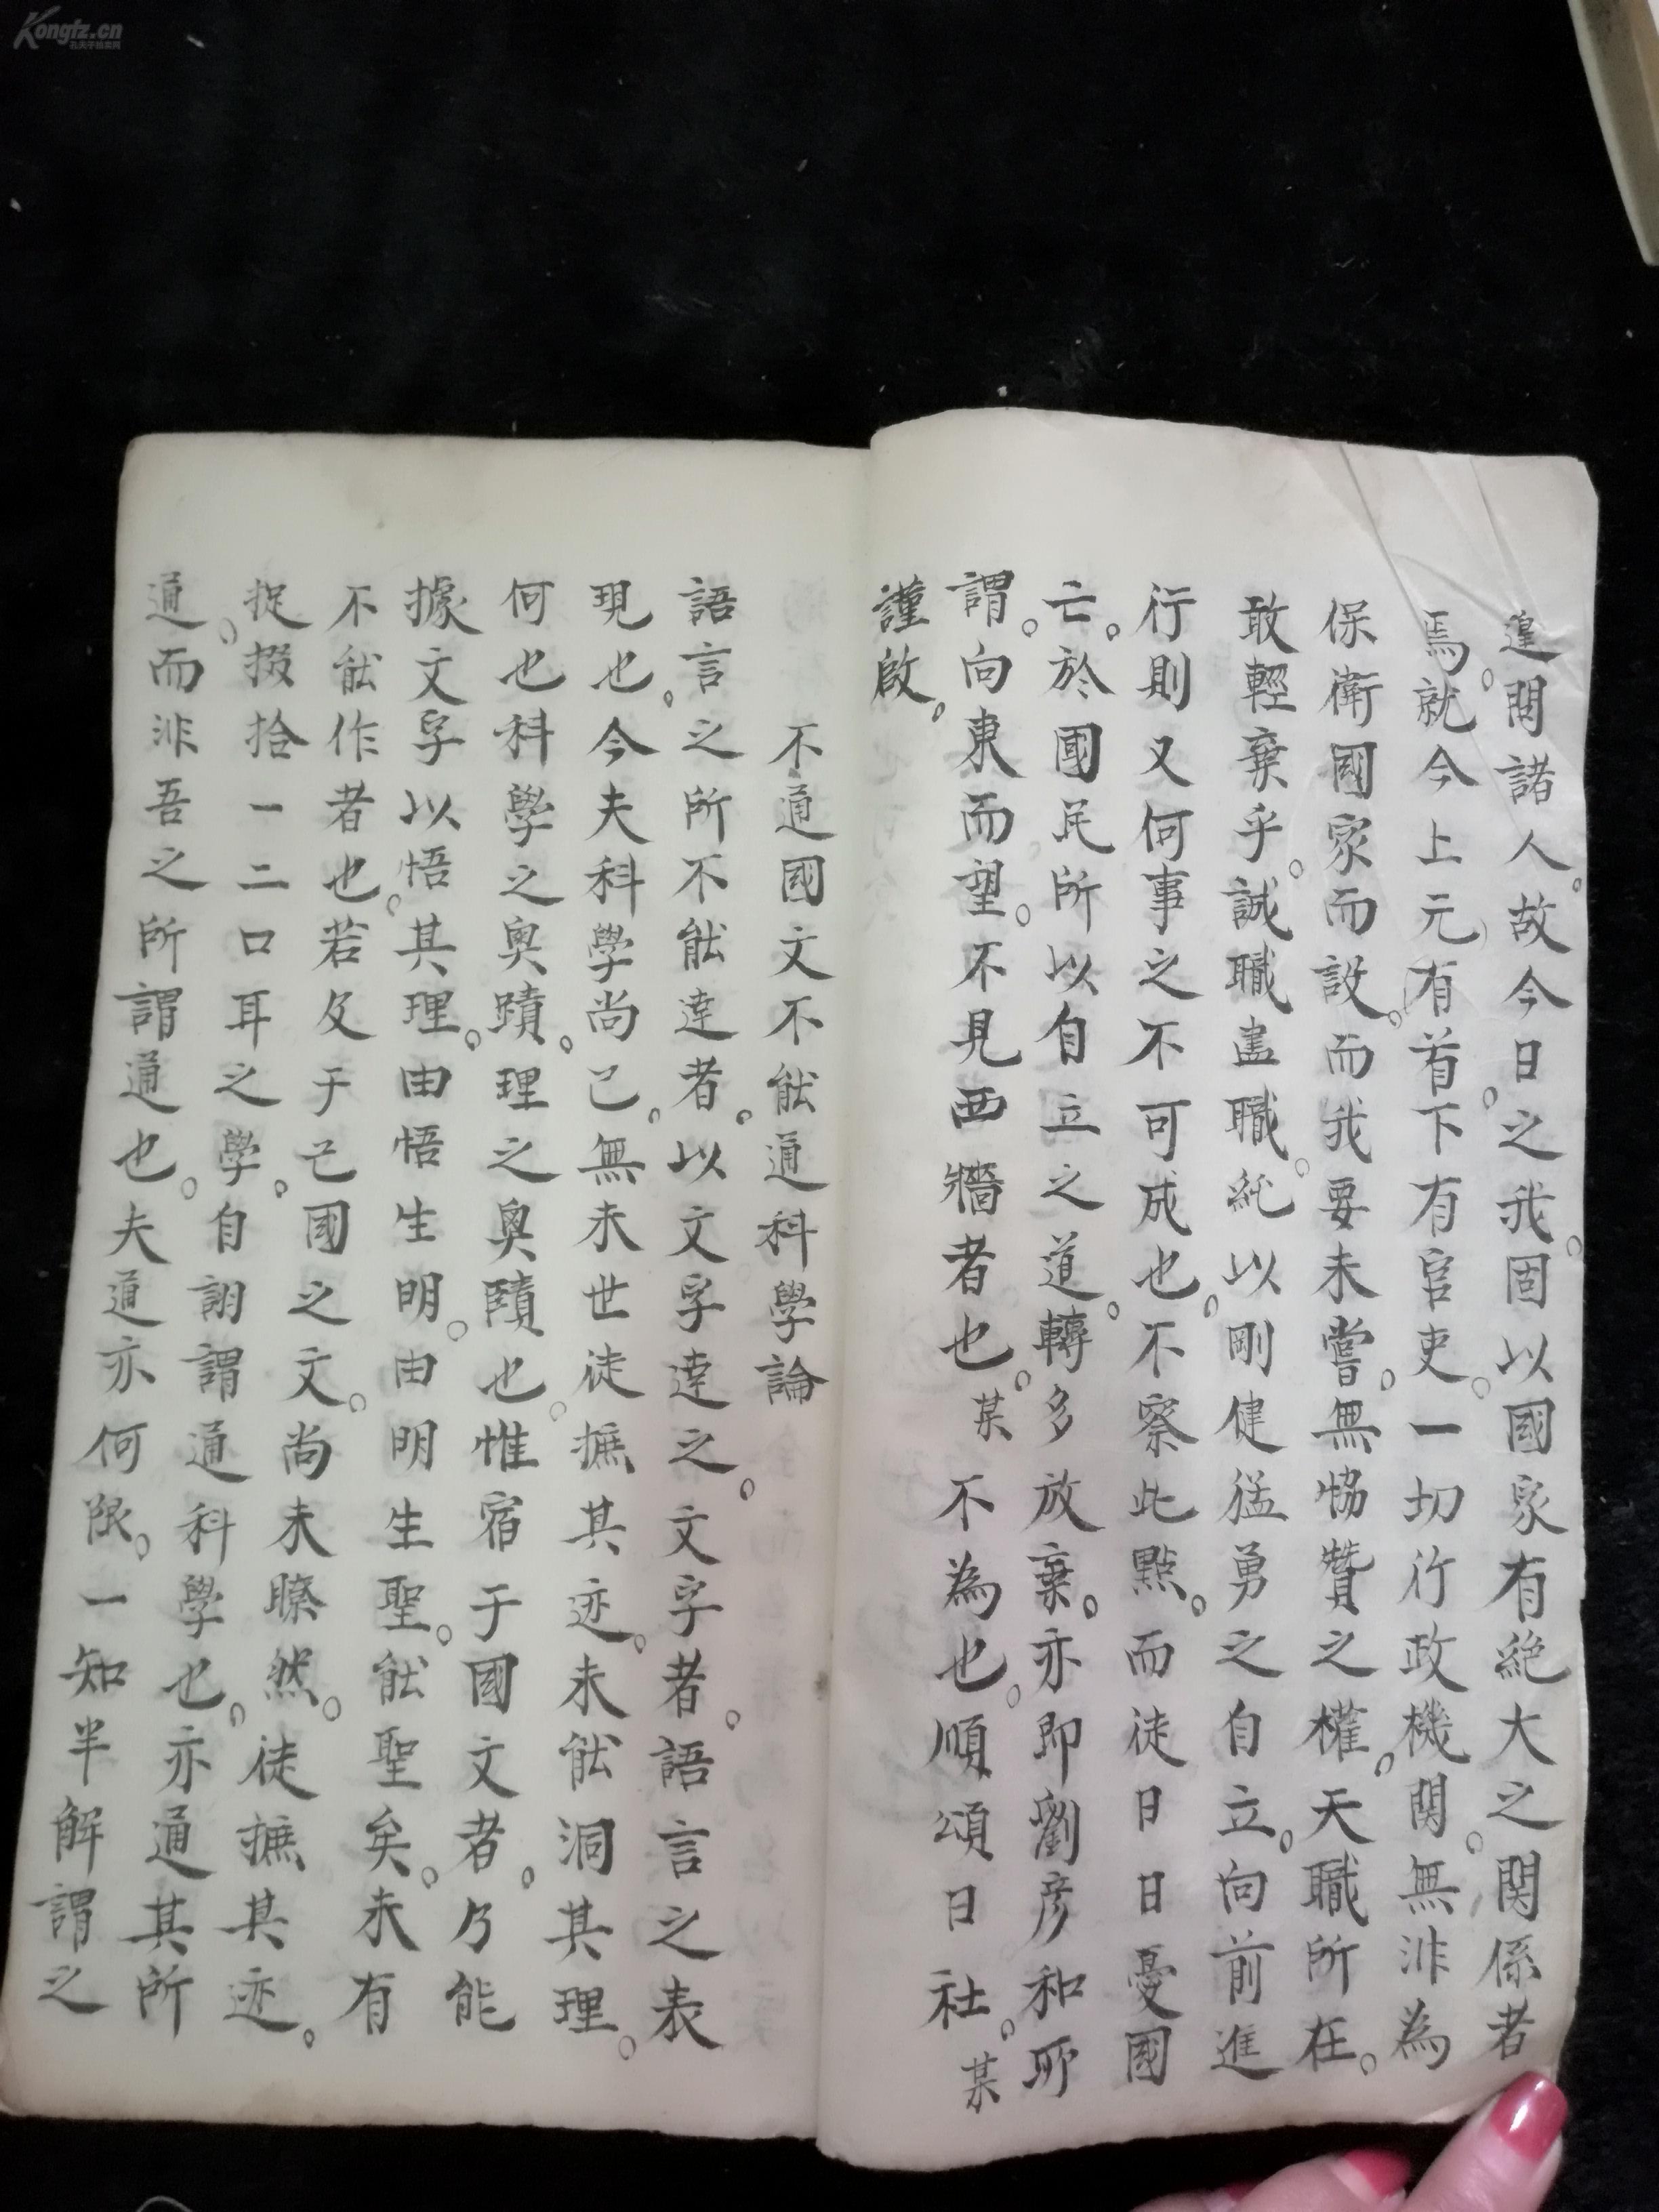 遑。関諸人。故今日。之我。固以國家有絕大之関係者
焉。就今上元有首下有官吏。一切行政機関。無非為
保衛國家而設。而我要未嘗。無恊贊之權。天職所在。
敢輕棄乎。誠職盡職。純以剛健猛勇之自立。向前進
行則又何事之不可成也。不察此點。而徒日日憂國
亡。於國民所以自立之道。轉多放棄。亦即劉彦和所
謂。向東而望。不見西牆者也。某不為也。順頌日社。某
謹啟。
不通國文不能通科學論
語言之所不能達者。以文字達之。文字者。語言之表
現也。今夫科學尚已。無未世徒摭其迹。未能洞其理。
何也科學之奧蹟。理之奧賾也。惟宿于國文者。乃能
據文字以悟其理。由悟生明。由明生聖。能聖矣。未有
不能作者也。若夊于已國之文。尚未瞭然。徒摭其迹。
捉掇拾一二口耳之學。自詡謂通科學也。亦通其所
通。而非吾之所謂通也。夫通亦何限。一知半解謂之
Kongfz.cn
孔夫子旧书网